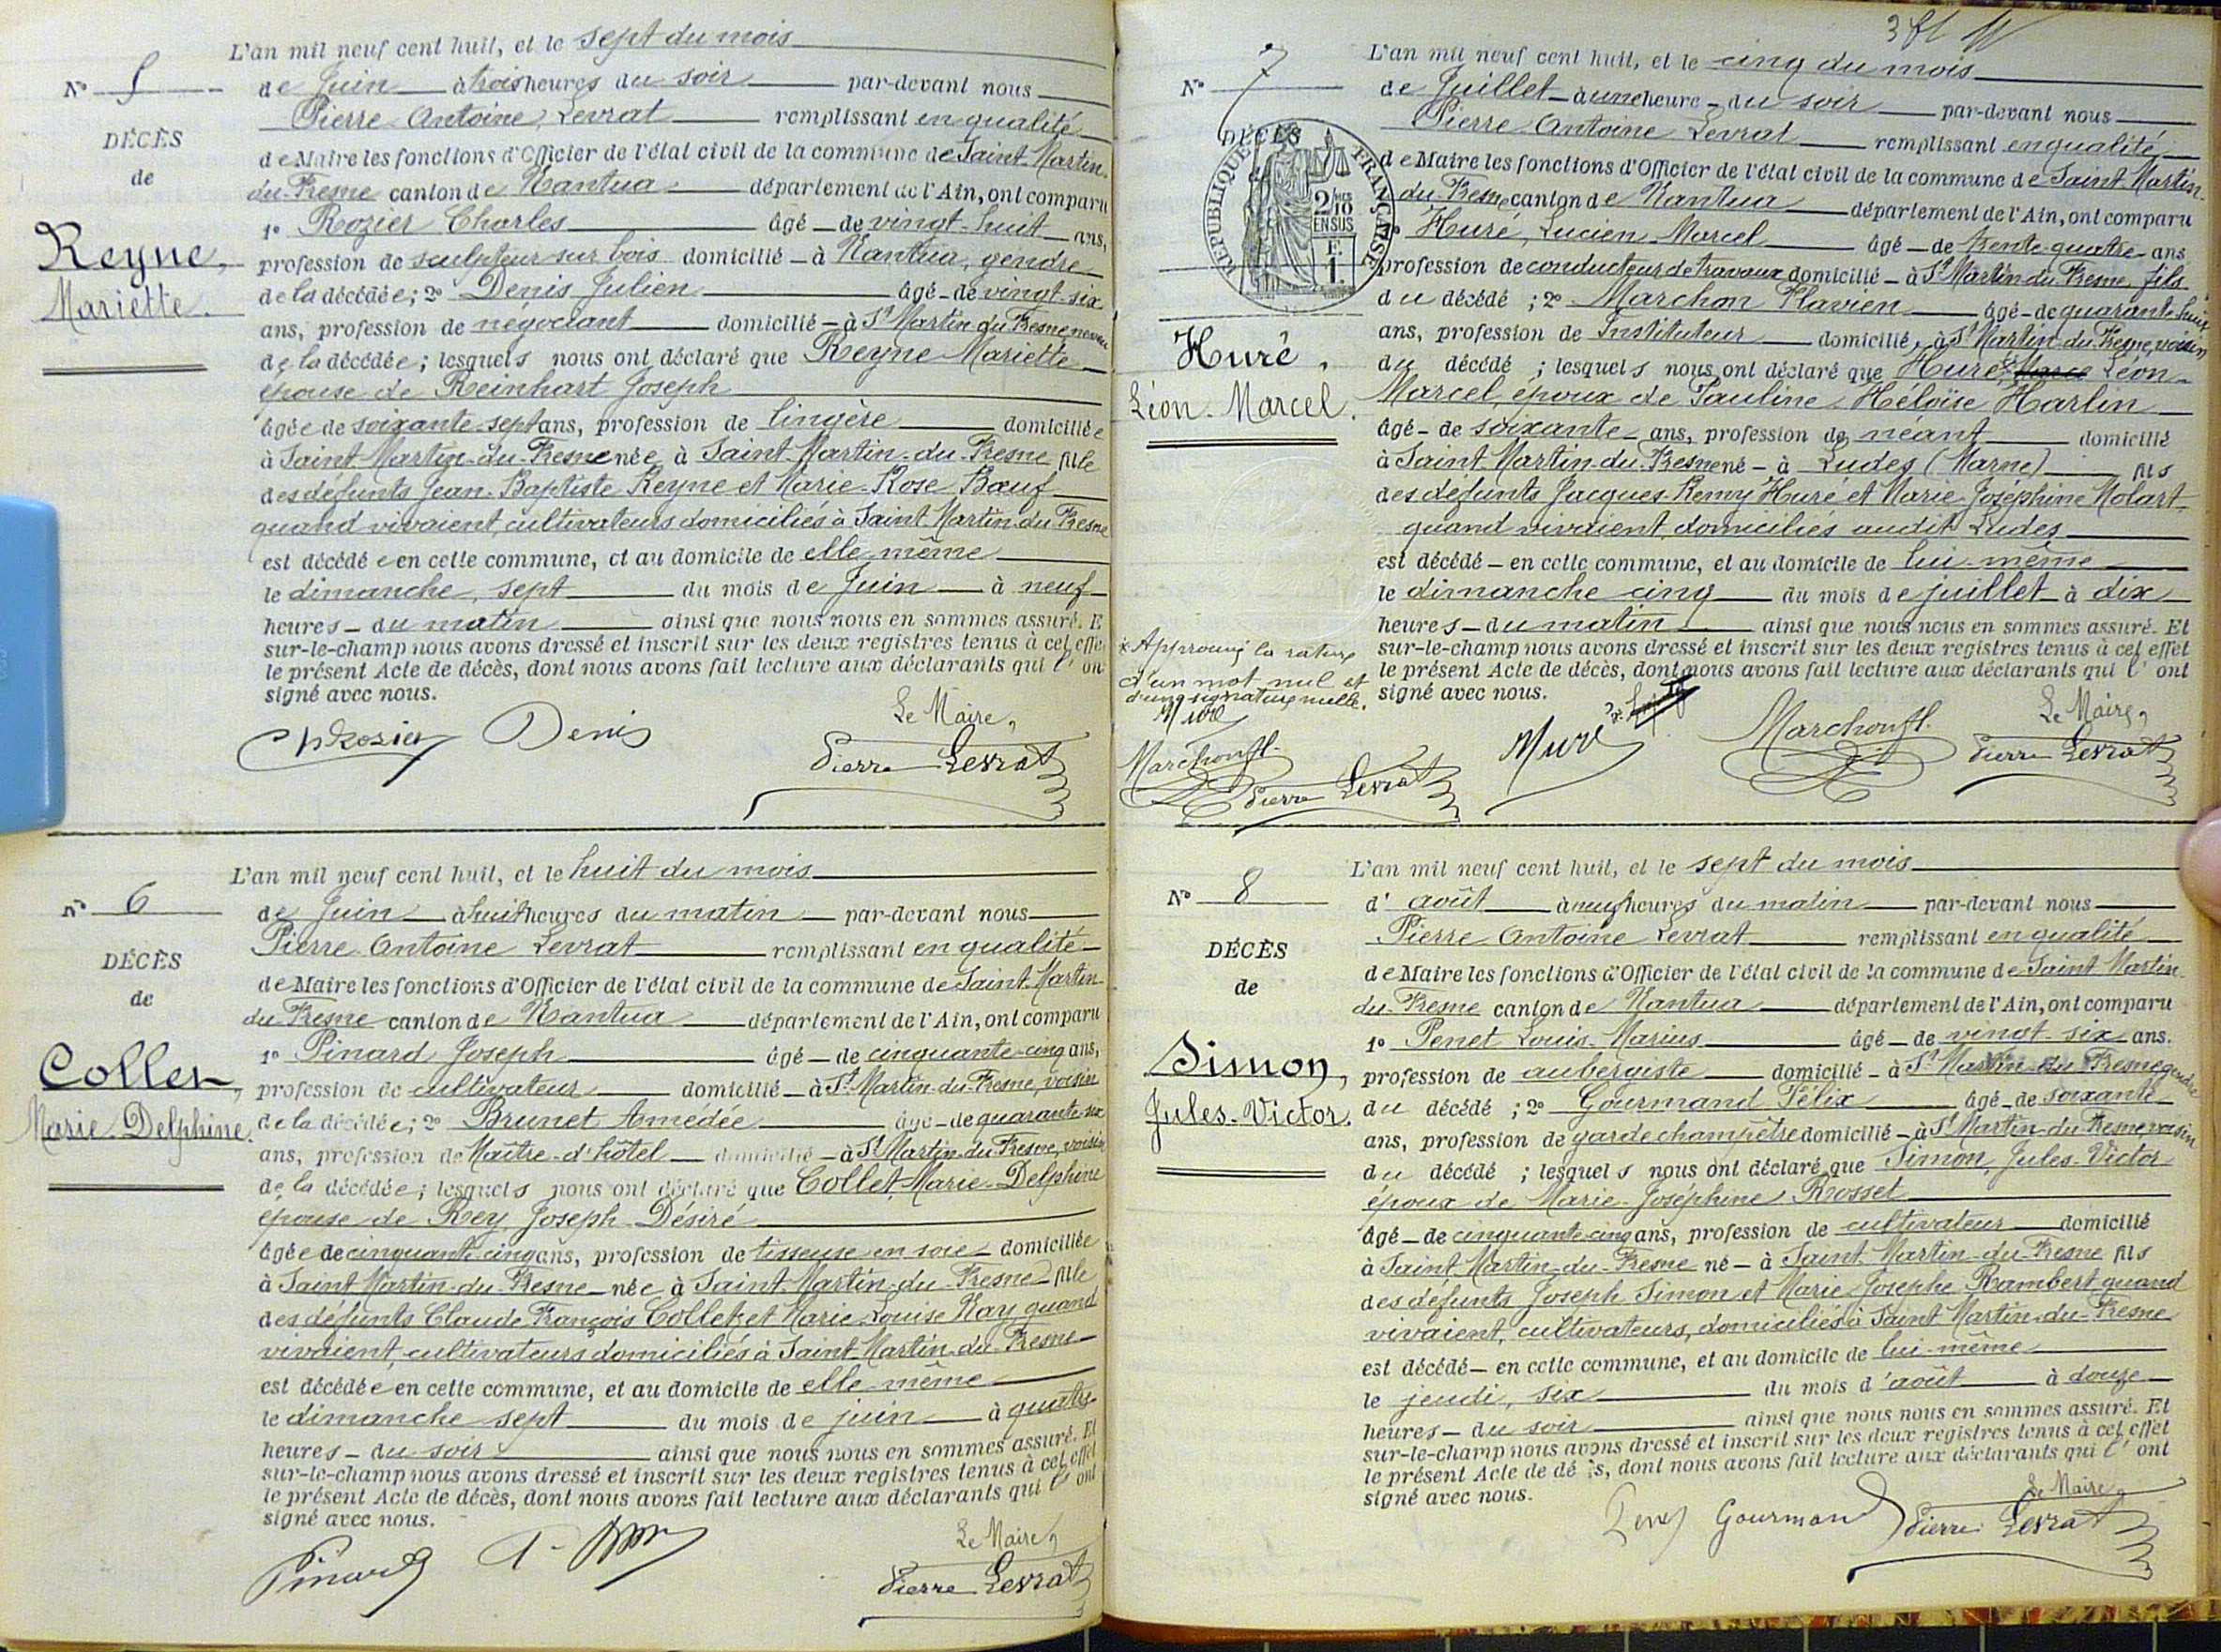 L'an mil neuf cent huit, et le sept du mois
N° 5
de Juin à trois heures du soir par-devant nous
Pierre Antoine Levrat remplissant en qualité
DÉCÈS
de Maire les fonctions d'Officier de l'état civil de la commune de Saint-Martin-
de
du-Fresne canton de Nantua département de l'Ain, ont comparu
1° Rozier Charles âgé de vingt-huit ans,
Reyne,
profession de sculpteur sur bois domicilié à Nantua, gendre
de la décédée; 2° Denis Julien âgé de vingt-six
Mariette.
ans, profession de négociant domicilié à St Martin du Fresne neveu
de la décédée; lesquels nous ont déclaré que Reyne Mariette
épouse de Reinhart Joseph
âgée de soixante-sept ans, profession de lingère domiciliée
à Saint-Martin-du-Fresne née à Saint-Martin-du-Fresne fille
des défunts Jean-Baptiste Reyne et Marie-Rose Bœuf
quand vivaient, cultivateurs domiciliés à Saint-Martin-du-Fresne
est décédée en cette commune, et au domicile de elle-même
le dimanche, sept du mois de Juin à neuf
heures du matin ainsi que nous nous en sommes assuré. E
sur-le-champ nous avons dressé et inscrit sur les deux registres tenus à cet effe
le présent Acte de décès, dont nous avons fait lecture aux déclarants qui l'on
signé avec nous.
Ch Rozier Denis Le Maire,
Pierre Levrat
L'an mil neuf cent huit, et le huit du mois
N° 6
de Juin à huit heures du matin par-devant nous
Pierre Antoine Levrat remplissant en qualité
DÉCÈS
de Maire les fonctions d'Officier de l'état civil de la commune de Saint-Martin-
de
du-Fresne canton de Nantua département de l'Ain, ont comparu
1° Pinard Joseph âgé de cinquante-cinq ans,
Collet,
profession de cultivateur domicilié à St Martin-du-Fresne, voisin
Marie-Delphine.
de la décédée; 2° Brunet Amédée âgé de quarante-six
ans, profession de Maître-d'hôtel domicilié à St Martin-du-Fresne, voisin
de la décédée; lesquels nous ont déclaré que Collet, Marie-Delphine
épouse de Rey, Joseph-Désiré
âgée de cinquante-cinq ans, profession de tisseuse en soie domiciliée
à Saint-Martin-du-Fresne née à Saint-Martin-du-Fresne fille
des défunts Claude François Collet et Marie-Louise Nay, quand
vivaient, cultivateurs domiciliés à Saint-Martin-du-Fresne
est décédée en cette commune, et au domicile de elle-même
le dimanche sept du mois de juin à quatre
heures du soir ainsi que nous nous en sommes assuré. Et
sur-le-champ nous avons dressé et inscrit sur les deux registres tenus à cet effet
le présent Acte de décès, dont nous avons fait lecture aux déclarants qui l'ont
signé avec nous.
Pinard Le Maire,
Pierre Levrat
L'an mil neuf cent huit, et le cinq du mois
N° 7
de Juillet à une heure du soir par-devant nous
Pierre Antoine Levrat remplissant en qualité
DÉCÈS
RÉPUBLIQUE FRANÇAISE
2/10 EN SUS
F.
1.
de Maire les fonctions d'Officier de l'état civil de la commune de Saint-Martin-
du-Fresne canton de Nantua département de l'Ain, ont comparu
Huré, Lucien-Marcel âgé de trente-quatre ans
profession de conducteur de travaux domicilié à St Martin du Fresne, fils
du décédé; 2° Marchon Flavien âgé de quarante-huit
Huré,
ans, profession de Instituteur domicilié, à St Martin-du-Fresne, voisin
du décédé; lesquels nous ont déclaré que Huré, Léon-
Léon-Marcel.
Marcel, époux de Pauline-Héloïse Harlin
âgé de soixante ans, profession de néant domicilié
à Saint-Martin-du-Fresne né à Ludes (Marne) fils
des défunts Jacques-Remy Huré et Marie-Joséphine Motart
quand vivaient, domiciliés audit Ludes
est décédé en cette commune, et au domicile de lui-même
le dimanche cinq du mois de juillet à dix
heures du matin ainsi que nous nous en sommes assuré. Et
sur-le-champ nous avons dressé et inscrit sur les deux registres tenus à cet effet
le présent Acte de décès, dont nous avons fait lecture aux déclarants qui l'ont
signé avec nous.
x Approuvé la rature
d'un mot nul et
d'une signature nulle.
Huré
Marchon fl.
Pierre Levrat
Huré Marchon fl. Le Maire,
Pierre Levrat
L'an mil neuf cent huit, et le sept du mois
N° 8
d'août à neuf heures du matin par-devant nous
Pierre Antoine Levrat remplissant en qualité
DÉCÈS
de Maire les fonctions d'Officier de l'état civil de la commune de Saint-Martin-
de
du-Fresne canton de Nantua département de l'Ain, ont comparu
1° Penet Louis-Marius âgé de vingt-six ans.
Simon,
profession de aubergiste domicilié à St Martin-du-Fresne gendre
Jules-Victor.
du décédé; 2° Gourmand Félix âgé de soixante
ans, profession de garde champêtre domicilié à St Martin-du-Fresne, voisin
du décédé; lesquels nous ont déclaré que Simon, Jules-Victor
époux de Marie-Joséphine Rosset
âgé de cinquante-cinq ans, profession de cultivateur domicilié
à Saint-Martin-du-Fresne né à Saint-Martin-du-Fresne fils
des défunts Joseph Simon et Marie Josephe Rambert quand
vivaient, cultivateurs, domiciliés à Saint-Martin-du-Fresne
est décédé en cette commune, et au domicile de lui-même
le jeudi, six du mois d'août à douze
heures du soir ainsi que nous nous en sommes assuré. Et
sur-le-champ nous avons dressé et inscrit sur les deux registres tenus à cet effet
le présent Acte de dé is, dont nous avons fait lecture aux déclarants qui l'ont
signé avec nous.
Penet Gourmand Le Maire,
Pierre Levrat